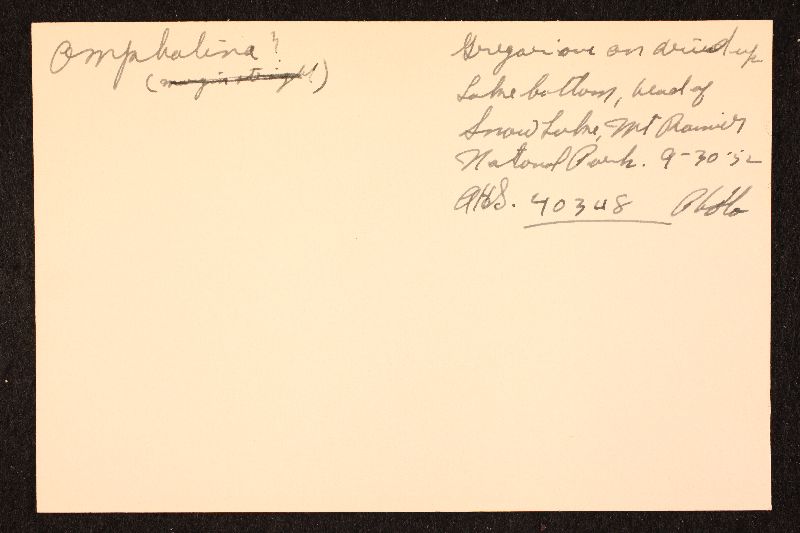 Omphalina ?
(margin straight)
Gregarious on dried up
Lake bottom, head of
Snow Lake, Mt Rainier
National Park. 9-30-52
AHS. 40348 Photo